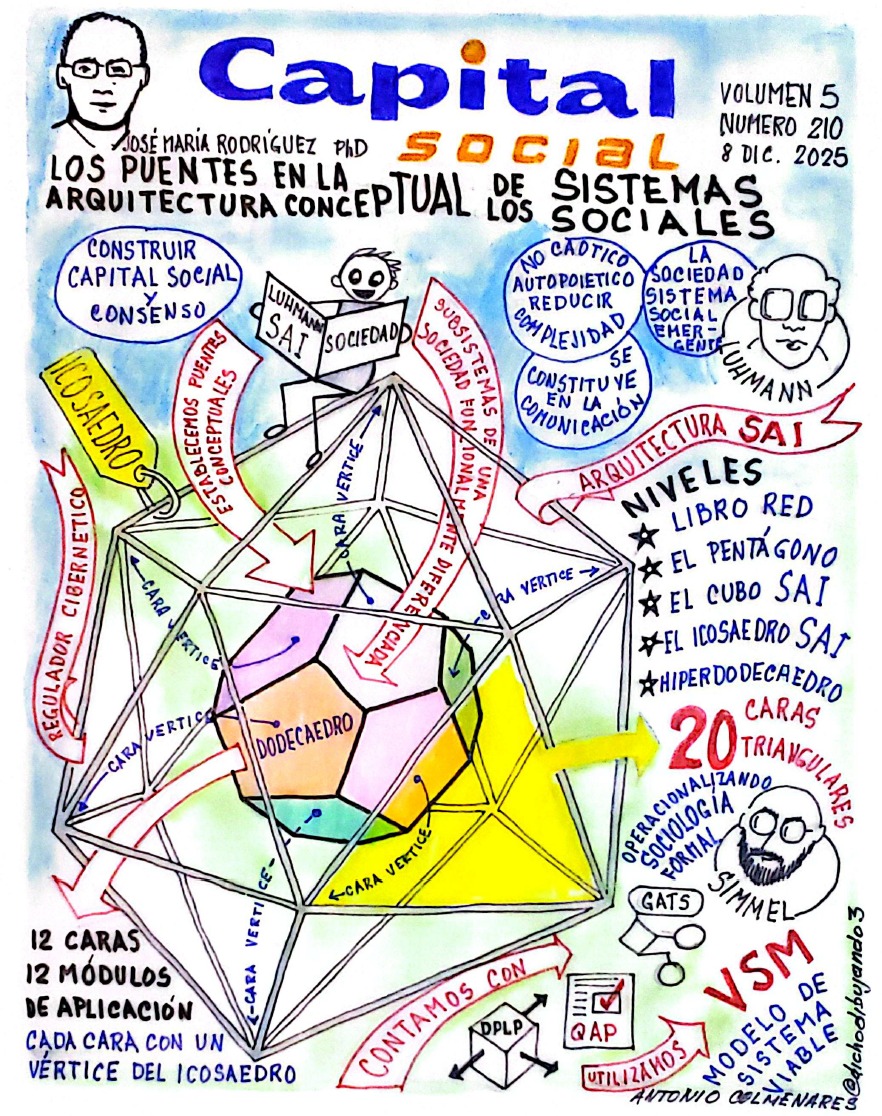 Capital
social
VOLUMEN 5
NUMERO 210
8 DIC. 2025
JOSÉ MARÍA RODRÍGUEZ PhD
LOS PUENTES EN LA
ARQUITECTURA CONCEPTUAL DE LOS SISTEMAS
SOCIALES
CONSTRUIR
CAPITAL SOCIAL
Y
CONSENSO
LUHMANN
SAI
SOCIEDAD
NO CAÓTICO
AUTOPOIETICO
REDUCIR
COMPLEJIDAD
LA
SOCIEDAD
SISTEMA
SOCIAL
EMER-
GENTE
SE
CONSTITUYE
EN LA
COMUNICACIÓN
LUHMANN
ICOSAEDRO
ESTABLECEMOS PUENTES
CONCEPTUALES
SUBSISTEMAS DE UNA
SOCIEDAD FUNCIONALMENTE DIFERENCIADA
ARQUITECTURA SAI
NIVELES
LIBRO RED
EL PENTÁGONO
EL CUBO SAI
EL ICOSAEDRO SAI
HIPERDODECAEDRO
REGULADOR CIBERNETICO
CARA VERTICE
CARA VERTICE
CARA VERTICE
CARA VERTICE
CARA VERTICE
CARA VERTICE
DODECAEDRO
20 CARAS
TRIANGULARES
OPERACIONALIZANDO
SOCIOLOGÍA
FORMAL
SIMMEL
GATS
12 CARAS
12 MÓDULOS
DE APLICACIÓN
CADA CARA CON UN
VÉRTICE DEL ICOSAEDRO
CONTAMOS CON
DPLP
QAP
UTILIZAMOS
VSM
MODELO DE
SISTEMA
VIABLE
ANTONIO COLMENARES
@dichodibujando3